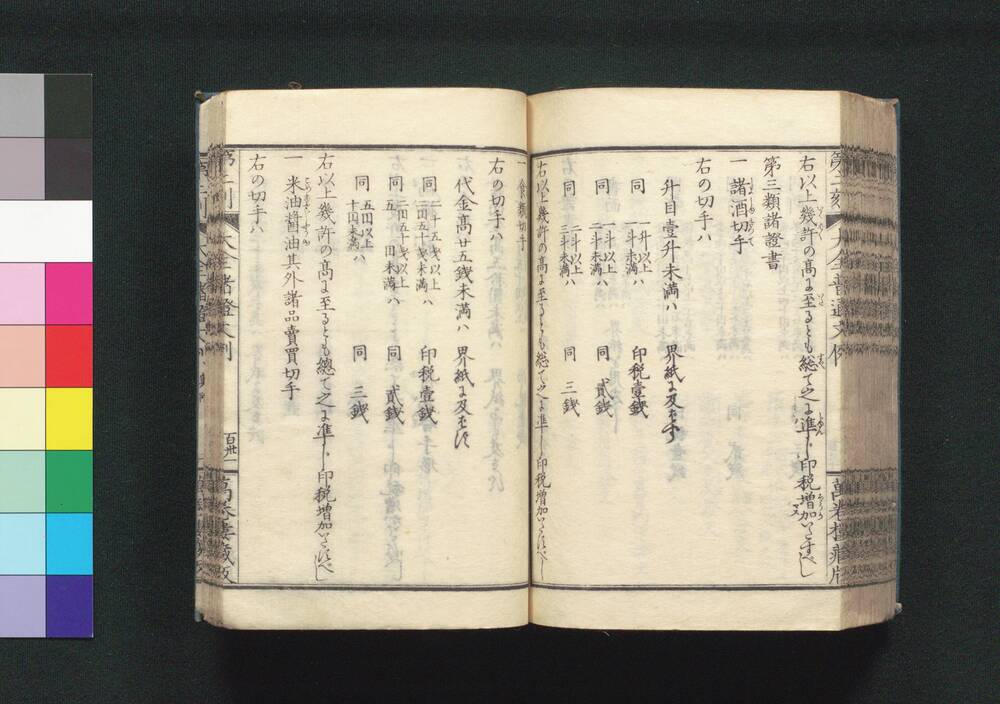 右以上幾許の高に至るとも総て之に準し印税増加いたすべし
第三類諸證書
一 諸酒切手
右の切手ハ
升目壹升未満ハ 界紙に及ばず
同 一升以上一斗未満ハ 印税壹銭
同 一斗以上二斗未満ハ 同 貳銭
同 二斗以上三斗未満ハ 同 三銭
右以上幾許の高に至るとも総て之に準し印税増加いたすべし
一 食類切手
右の切手ハ
代金高廿五銭未満ハ 界紙に及ばず
同 二十五銭以上二円五十銭未満ハ 印税壹銭
同 二円五十銭以上五円未満ハ 同 貳銭
同 五円以上十円未満ハ 同 三銭
右以上幾許の高に至るとも總て之に準し印税増加いたすべし
一 米油醬油其外諸品賣買切手
右の切手ハ
百卅一
萬巻樓蔵版